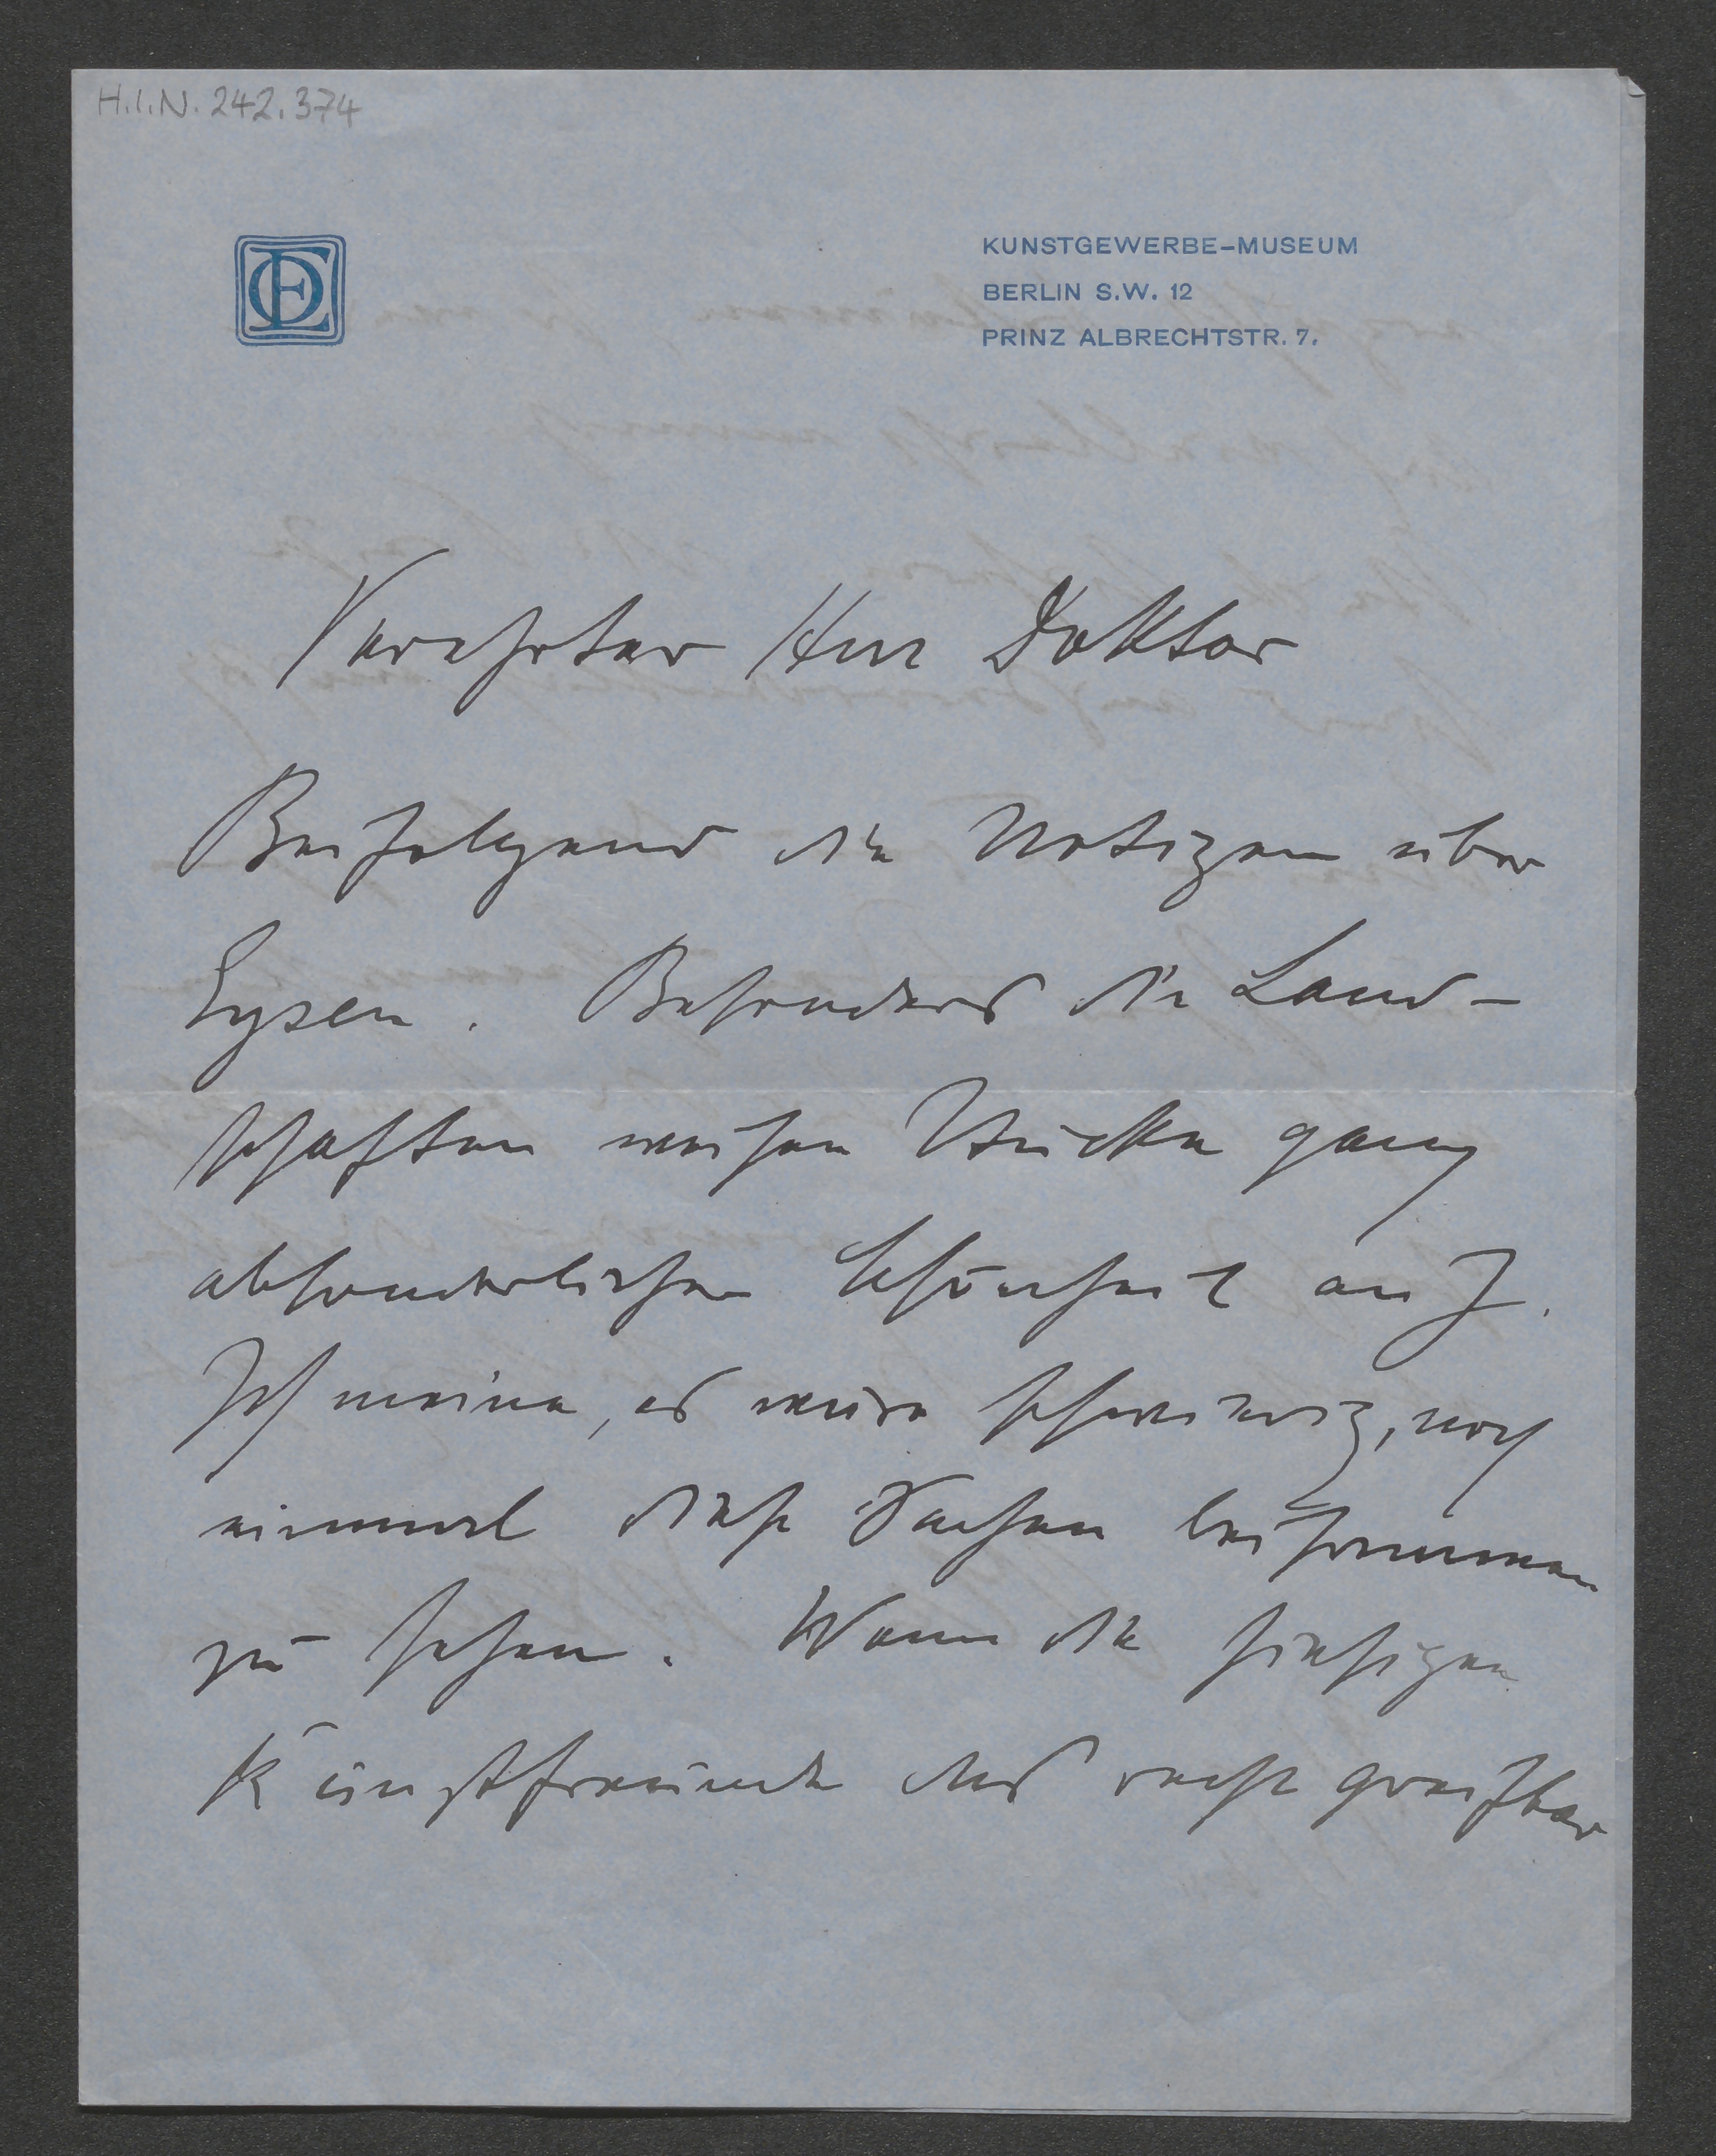 H.I.N. 242.374
KUNSTGEWERBE-MUSEUM
BERLIN S.W. 12
PRINZ ALBRECHTSTR. 7.
Verehrter Herr Doktor
Beifolgend die Notizen über
Eysen. Besonders die Land-
schaften weisen Stücke ganz
absonderlicher Schönheit auf.
Ich meine, es wäre schwierig, noch
einmal diese Sachen beisammen
zu sehen. Wenn die hiesigen
Kunstfreunde das recht greifbar